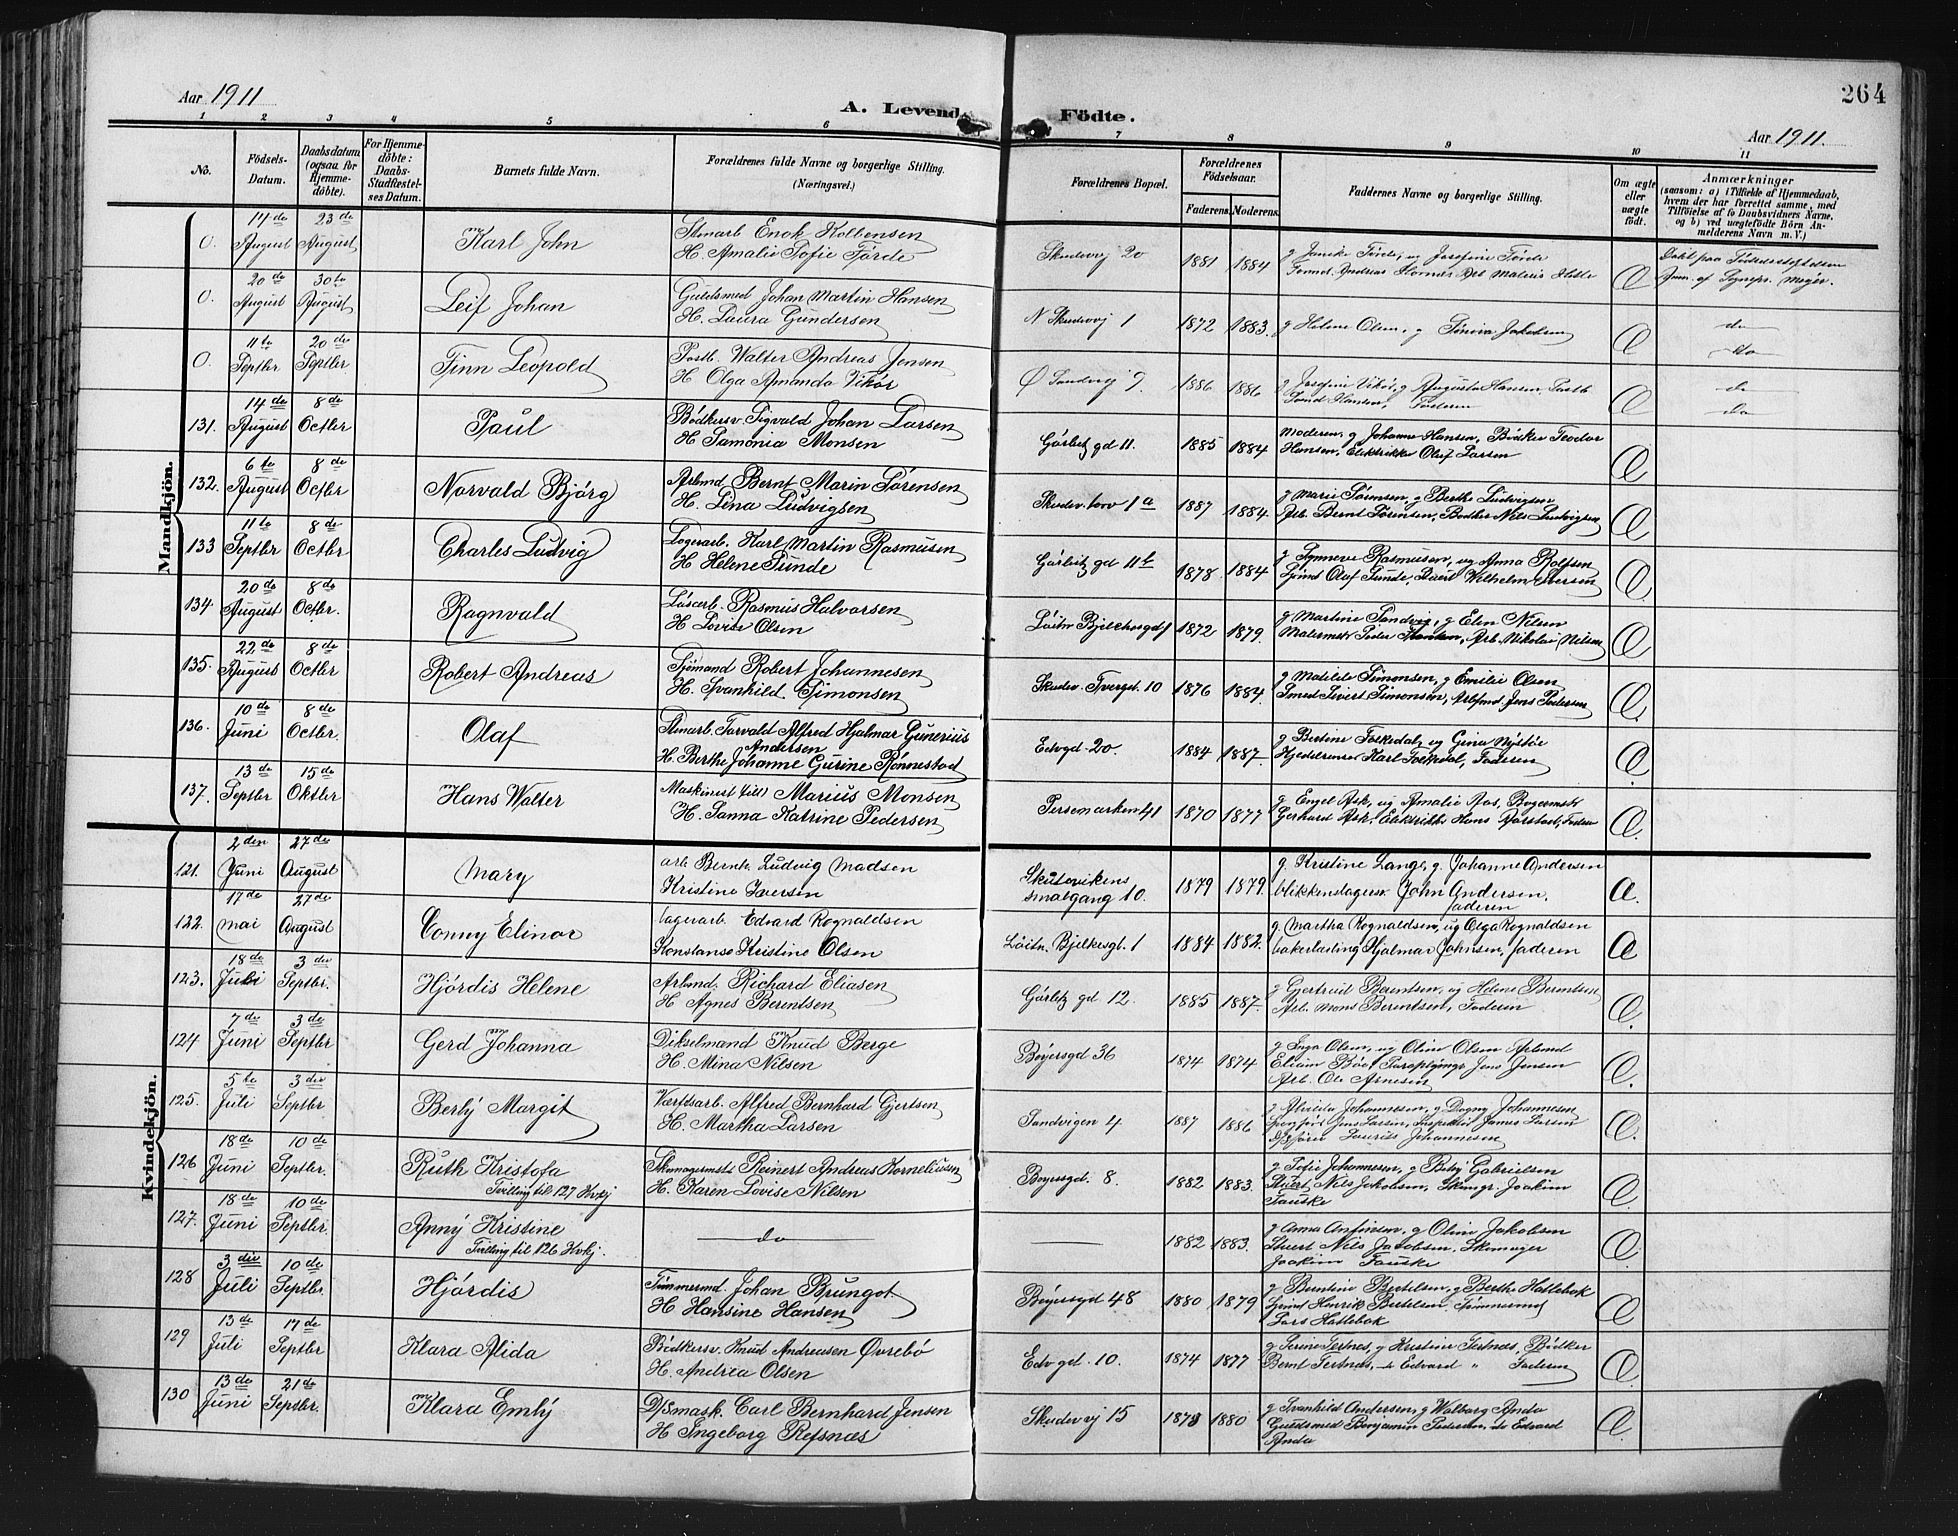 264
Aar 1911
A. Levende Födte.
Aar 1911.
1 2 3 4 5 6 7 8 9 10 11
No.
Födsels-Datum.
Daabsdatum (ogsaa for Hjemme-döbte).
For Hjemme-döbte: Daabs-Stadfæstel-ses Datum.
Barnets fulde Navn.
Forældrenes fulde Navne og borgerlige Stilling. (Næringsvei.)
Forældrenes Bopæl.
Forældrenes Födselsaar.
Faderens. Moderens.
Faddernes Navne og borgerlige Stilling.
Om ægte eller uægte födt.
Anmærkninger (saasom: a) i Tilfælde af Hjemmedaab, hvem der har forrettet samme, med Tilföielse af to Daabsvidners Navne, og b) ved uægtefödte Börn An-melderens Navn m. V.)
Mandkjön.
0. 14de August 23de August Karl John Stenarb Enok Kolbensen
H. Amalie Sofie Førde
Skudevj 20 1881 1884
0. 20de August 30te August Leif Johan Guldsmed Johan Martin Hansen
H. Laura Gundersen
N Skudevj 1 1872 1883. g Helene Olsen, g Jakobsen
do
do
0. 11te Septbr 20de Septbr Finn Leopold Postb. Walter Andreas Jensen
H Olga Amanda Vikør
Ø Sandvej 9. 1886 1886
do
do
131. 14de August 8de Octbr Paul Bødkersv. Sigvald Johan Larsen
H. Samonia Monsen
Görbitz gd 11. 1885 1884 Moderen, g Johanne Hansen, Bødker Teodor
Hansen, Elektrikke Olaf Larsen
132. 6te August 8de Octbr Norvald Bjørg Arbmd Bernt Marin Sørensen
H. Lena Ludvigsen
Skudev. torv 1a 1887 1884. g Marie Sørensen, g Berthe Ludvigsen
Arb. Bernt Sørensen, Bødker Nils Ludvigsen
133 11te Septbr 8de Octbr Charles Ludvig Lagerarb. Karl Martin Rasmusen
H Helene Sunde
Görbitz gd 11b 1878. 1884 g Synneve Rasmusen, ug Anna Rolfsen
Sjømd Olaf Sunde, Stuert Wilhelm Iversen
134 20de August 8de Octbr. Ragnvald Løsarb. Rasmus Halvorsen
H Lovise Olsen
Löitn Bjelkesgd 1 1872 1879. g Martine Sandvig, g Elen Nilsen
Malermstr Peder Hansen, Arb. Nikolai Nilsen
135. 22de August 8de Octbr Robert Andreas Sjømand Robert Johannesen
H. Svanhild Simonsen
Skudev. Tvergt. 10 1876 1884. g Matilde Simonsen, g Emilie Olsen
Smed Sivert Simonsen, Arbfmd. Jens Pedersen
136. 10de Juni 8de Octbr. Olaf Stenarb. Torvald Alfred Hjalmar Gunerius
Andersen
H. Berthe Johanne Gurine Rønnestad
Edvgd 20. 1884 1887. g Bertine Toskedal, ug Gina Nystøe
Karl Toskedal, Faderen
137. 13de Septbr 15de Oktbr Hans Walter Maskinist Marius Monsen
H. Sanna Katrine Pedersen
Persemarken 41 1870 1877 g Engel Ask, ug Amalie Aas,
Gerhard Ask, Elektrikke Hans Aarstad, Faderen
Kvindekjön.
121. 2den Juni 27de August Mary arb. Bernh. Ludvig Madsen
Kristine Iversen
Skutevikens
smalgang 10. 1879 1879. g. Kristine Lange, g. Johanne Andersen
blikkenslagersv. John Andersen,
faderen
122. 17de mai 27de August Conny Elinor lagerarb. Edvard Rognaldsen
Konstanse Kristine Olsen
Löitn. Bjelkesgt. 1 1884 1882. g. Martha Rognaldsen, ug Olga Rognaldsen
bakerlærling Hjalmar Johnsen, faderen
123. 18de Juli 3de Septbr. Hjördis Helene Arbmd. Richard Eliasen
H Agnes Berentsen
Görbitz gd 12. 1885 1887. g Gjertrud Berentsen, ug Helene Berentsen
Arb. Mons Berentsen, Faderen
124 7de Juni 3de Septbr Gerd Johanna Dikselmand Knud Berge
H. Mina Nilsen
Bøyersgd 36 1874 1874 g Inga Olsen, ug Oline Olsen Arbmd
Jens Jensen
Arb. Ole Arnesen
125. 5te Juli 3die Septbr Berly Margit Værftsarb. Alfred Bernhard Gjertsen
H. Martha Larsen
Sandvigen 4 1887 1886 g Alvilde Johannesen, g Dagny Johannesen
Jens Larsen, Inspektør James Larsen
Lauritz Johannesen
126 18de Juni 10de Septbr. Ruth Kristofa
Tvilling til 127 Kvkj
Skomagermstr Reinert Andreas Korneliusen
H. Karen Lovise Nilsen
Bøyersgd. 8. 1882 1883. g Sofie Johannesen, g Betsy Gabrielsen
Stuert Nils Jakobsen, Skomgr. Joakim
Fauske
127. 18de Juni 10de Septbr. Anny Kristine
Tvilling til 126 Kvkj.
do
1882 1883. g Anna Antonsen, g Oline Jakobsen
Stuert Nils Jacobsen, Skomager
Joakim Fauske
128 3die Juli 10de Septbr Hjördis Tømmermd. Johan Brungot
H Hansine Hansen
Bøyersgd 48 1880 1879 g Berntine Bertelsen, g Berthe Hatlebak
Sjømd Henrik Bertelsen, Tømmermd
Lars Hatlebak
129 13de Juli 17de Septbr Klara Alida Bødkersv. Knud Andreasen Øvrebø
H. Andrea Olsen
Edv gd. 10. 1874 1877 g Serine Tertnes, g Kristine Tertnes, Bødker
Bernt Tertnes, do Edvard " Faderen
130 13de Juni 21de Septbr. Klara Emly D/S.mask. Carl Bernhard Jensen
H Ingeborg Refsnæs
Skudevj 15 1878 1880 g Svanhild Andersen, g Walborg Anda
Guldsmed Benjamin Pedersen, do Edvard
Anda